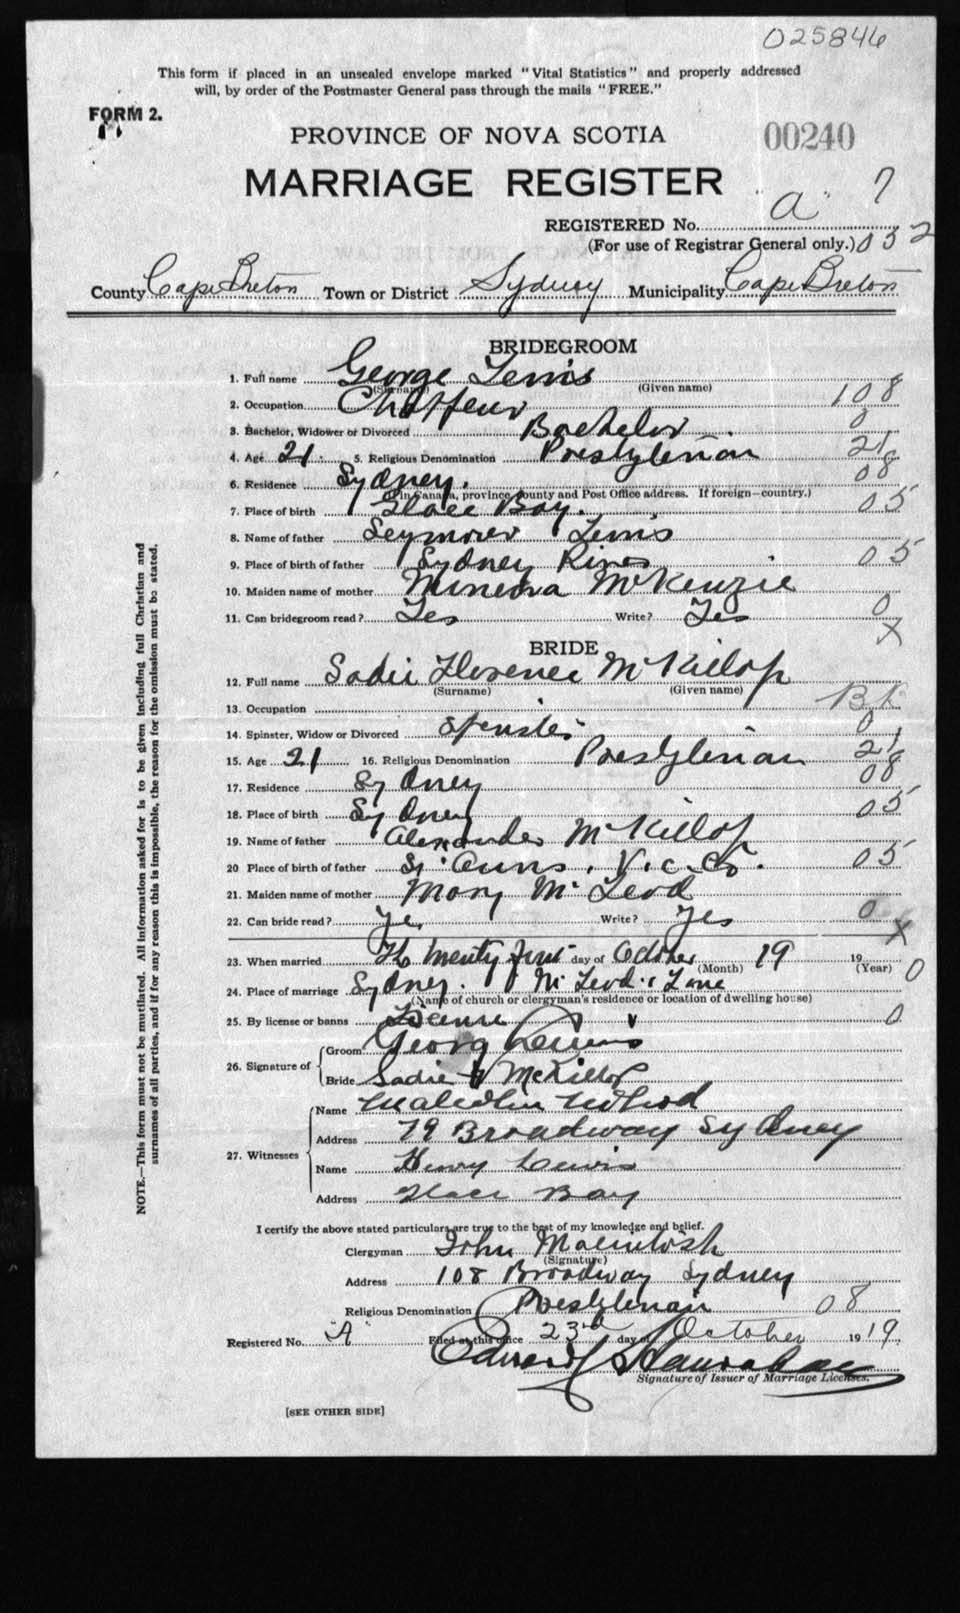 025846
This form if placed in an unsealed envelope marked "Vital Statistics" and properly addressed
will, by order of the Postmaster General pass through the mails "FREE."
FORM 2.
PROVINCE OF NOVA SCOTIA 00240
MARRIAGE REGISTER
REGISTERED No. a 7
(For use of Registrar General only.) 032
County Cape Breton Town or District Sydney Municipality Cape Breton
BRIDEGROOM
1. Full name George Lewis
(Surname) (Given name)
2. Occupation Chaffeur 108
3. Bachelor, Widower or Divorced Bachelor 0
4. Age 21 5. Religious Denomination Presbyterian 21
6. Residence Sydney. 08
(If in Canada, province county and Post Office address. If foreign—country.)
7. Place of birth Glace Bay. 05
8. Name of father Seymour Lewis
9. Place of birth of father Sydney Mines 05
10. Maiden name of mother Minerva McKenzie
11. Can bridegroom read? Yes Write? Yes 0
X
BRIDE
12. Full name Sadie Florence McKillop
(Surname) (Given name)
13. Occupation
14. Spinster, Widow or Divorced Spinster 0
15. Age 21 16. Religious Denomination Presbyterian 21
17. Residence Sydney 08
18. Place of birth Sydney 05
19. Name of father Alexander McKillop
20 Place of birth of father St Anns, Vic. Co. 05
21. Maiden name of mother Mary McLeod
22. Can bride read? Yes Write? Yes 0
X
23. When married The twenty first day of October 19 19
(Month) (Year) 0
24. Place of marriage Sydney. McLeod's Lane
(Name of church or clergyman's residence or location of dwelling house)
25. By license or banns License 0
26. Signature of Groom George Lewis
Bride Sadie F McKillop
27. Witnesses Name Malcolm McLeod
Address 79 Broadway Sydney
Name Henry Lewis
Address Glace Bay
I certify the above stated particulars are true to the best of my knowledge and belief.
Clergyman John Macintosh
(Signature)
Address 108 Broadway Sydney
Religious Denomination Presbyterian 08
Registered No. "A" Filed at this office 23rd day of October 1919
Edward
Signature of Issuer of Marriage Licenses.
[SEE OTHER SIDE]
NOTE.—This form must not be mutilated. All information asked for is to be given including full Christian and
surnames of all parties, and if for any reason this is impossible, the reason for the omission must be stated.